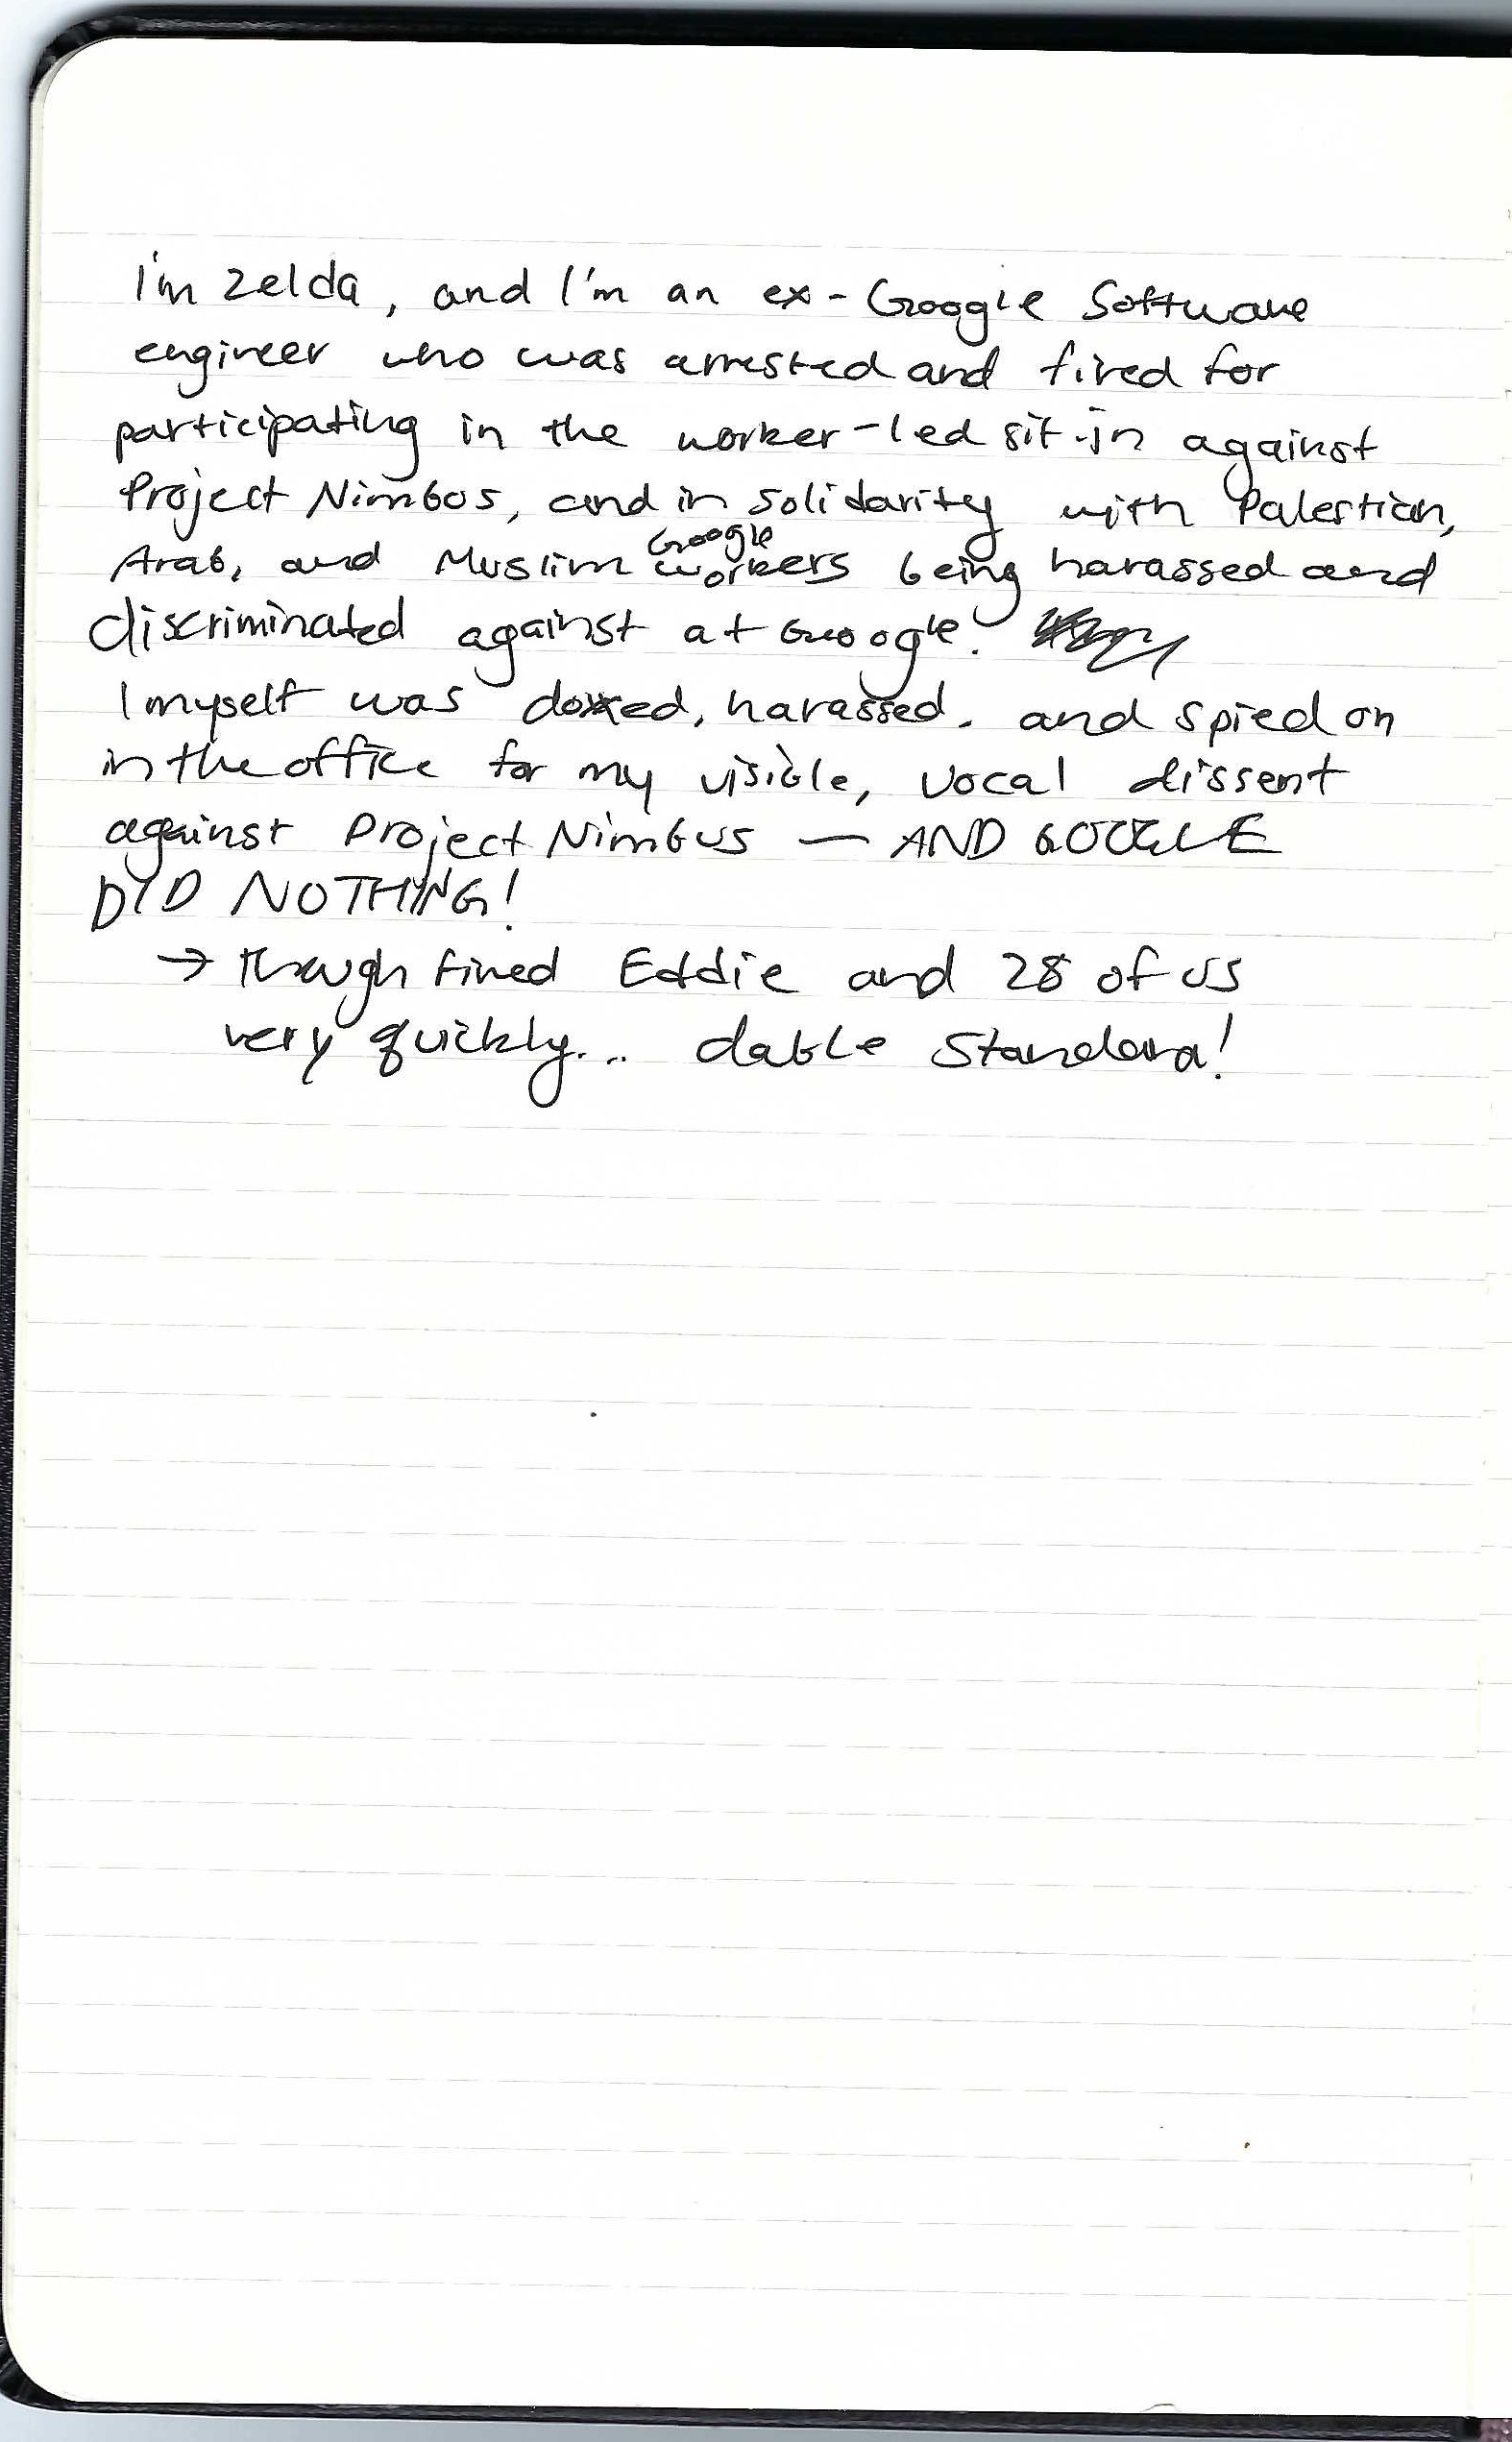 I'm Zelda, and I'm an ex-Google Software
engineer who was arrested and fired for
participating in the worker-led sit-in against
Project Nimbus, and in solidarity with Palestian,
Google
Arab, and Muslim workers being harassed and
discriminated against at Google.
I myself was doxxed, harassed, and spied on
in the office for my visible, vocal dissent
against Project Nimbus — AND GOOGLE
DID NOTHING!
→ though fired Eddie and 28 of us
very quickly... dable Standard!